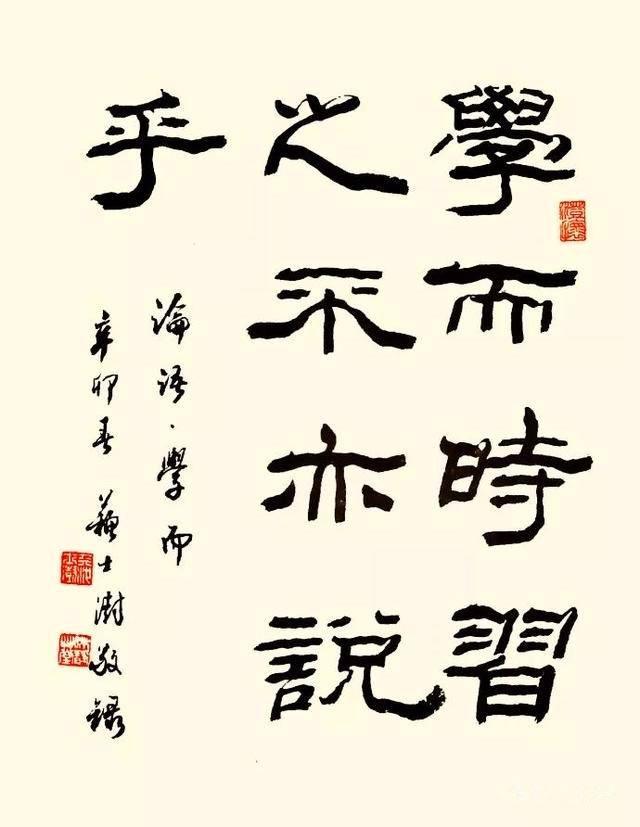 學而時習
之不亦說
乎
論語·學而
辛卯春 蘇士澍敬錄